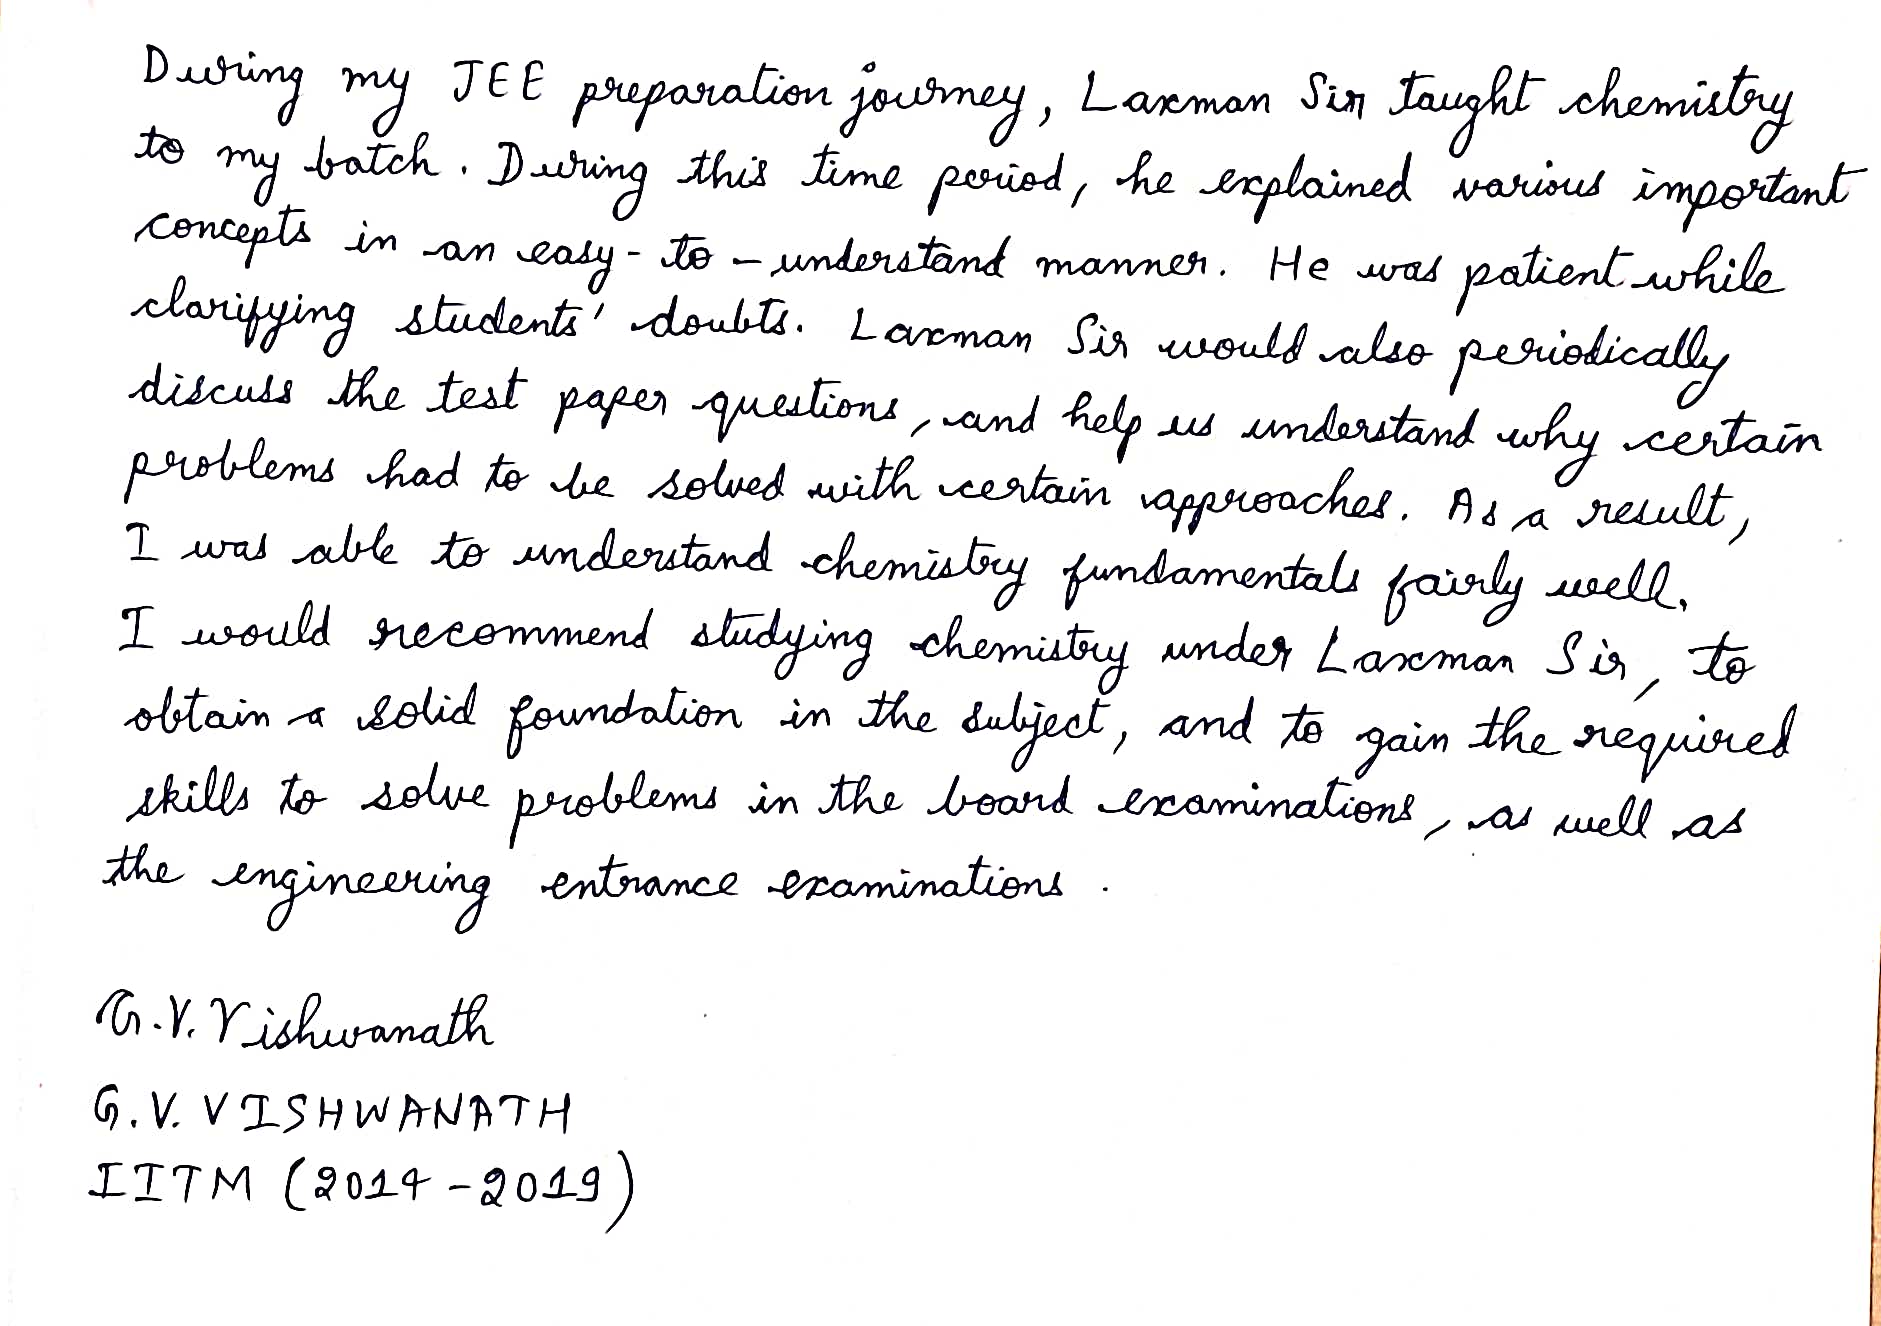 During my JEE preparation journey, Laxman Sir taught chemistry
to my batch. During this time period, he explained various important
concepts in an easy-to-understand manner. He was patient while
clarifying students' doubts. Laxman Sir would also periodically
discuss the test paper questions, and help us understand why certain
problems had to be solved with certain approaches. As a result,
I was able to understand chemistry fundamentals fairly well.
I would recommend studying chemistry under Laxman Sir, to
obtain a solid foundation in the subject, and to gain the required
skills to solve problems in the board examinations, as well as
the engineering entrance examinations.
G.V. Vishwanath
G.V. VISHWANATH
IITM (2014-2019)